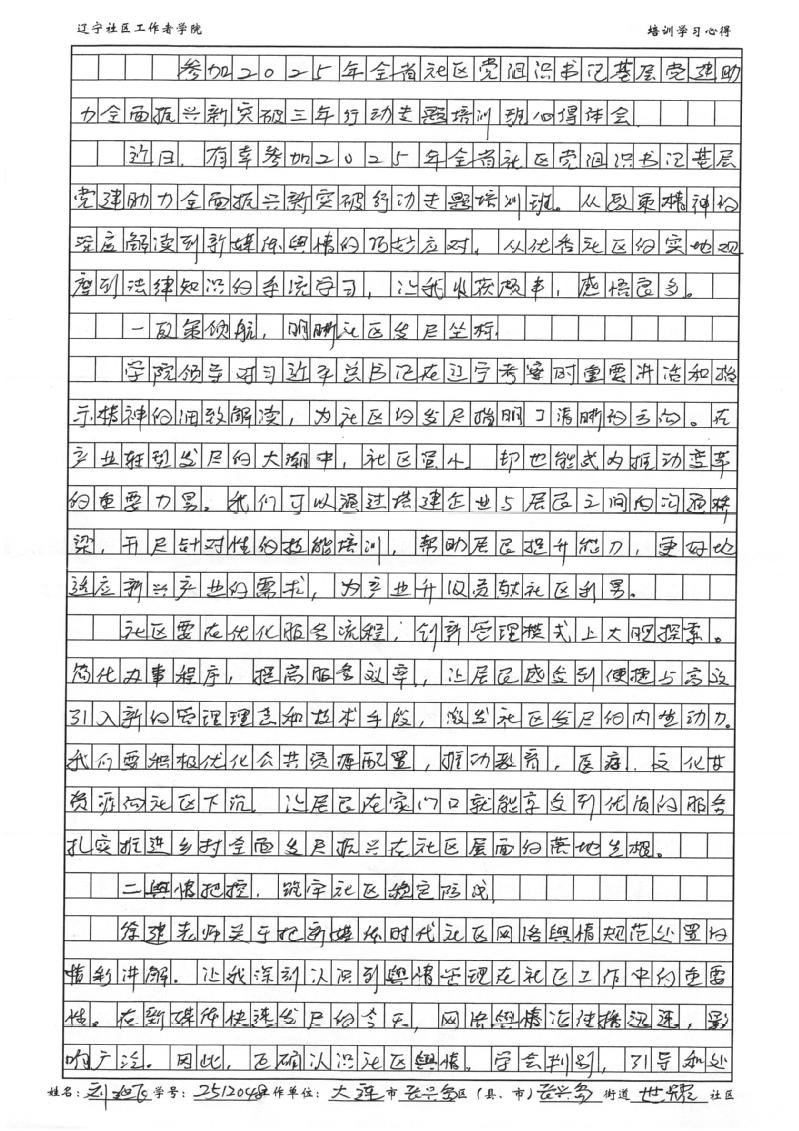 辽宁社区工作者学院 培训学习心得
参加2025年全省社区党组织书记基层党建助
力全面振兴新突破三年行动专题培训班心得体会
近日,有幸参加2025年全省社区党组织书记基层
党建助力全面振兴新突破行动专题培训班。从政策精神的
深度解读到新媒体舆情的巧妙应对,从优秀社区的实地观
摩到法律知识的系统学习,让我收获颇丰,感悟良多。
一 政策领航,明晰社区发展坐标
学院领导对习近平总书记在辽宁考察时重要讲话和指
示精神的细致解读,为社区的发展指明了清晰的方向。在
产业转型发展的大潮中,社区虽小 却也能成为推动变革
的重要力量。我们可以通过搭建企业与居民之间的沟通桥
梁,开展针对性的技能培训,帮助居民提升能力,更好地
适应新兴产业的需求,为产业升级贡献社区力量。
社区要在优化服务流程,创新管理模式上大胆探索。
简化办事程序,提高服务效率,让居民感受到便捷与高效
引入新的管理理念和技术手段,激发社区发展的内生动力。
我们要积极优化公共资源配置,推动教育,医疗.文化女
资源向社区下沉.让居民在家门口就能享受到优质的服务
扎实推进乡村全面发展振兴在社区层面的落地生根。
二 舆情把控,筑牢社区稳定防线
徐建老师关于把新媒体时代社区网络舆情规范处置的
精彩讲解.让我深刻认识到舆情管理在社区工作中的重要
性。在新媒体快速发展的今天,网络舆情传播迅速,影
响广泛。因此,正确认识社区舆情.学会判别,引导和处
姓名: 学号:2512048 工作单位:大连市长兴岛区(县、市)长兴岛 街道 社区